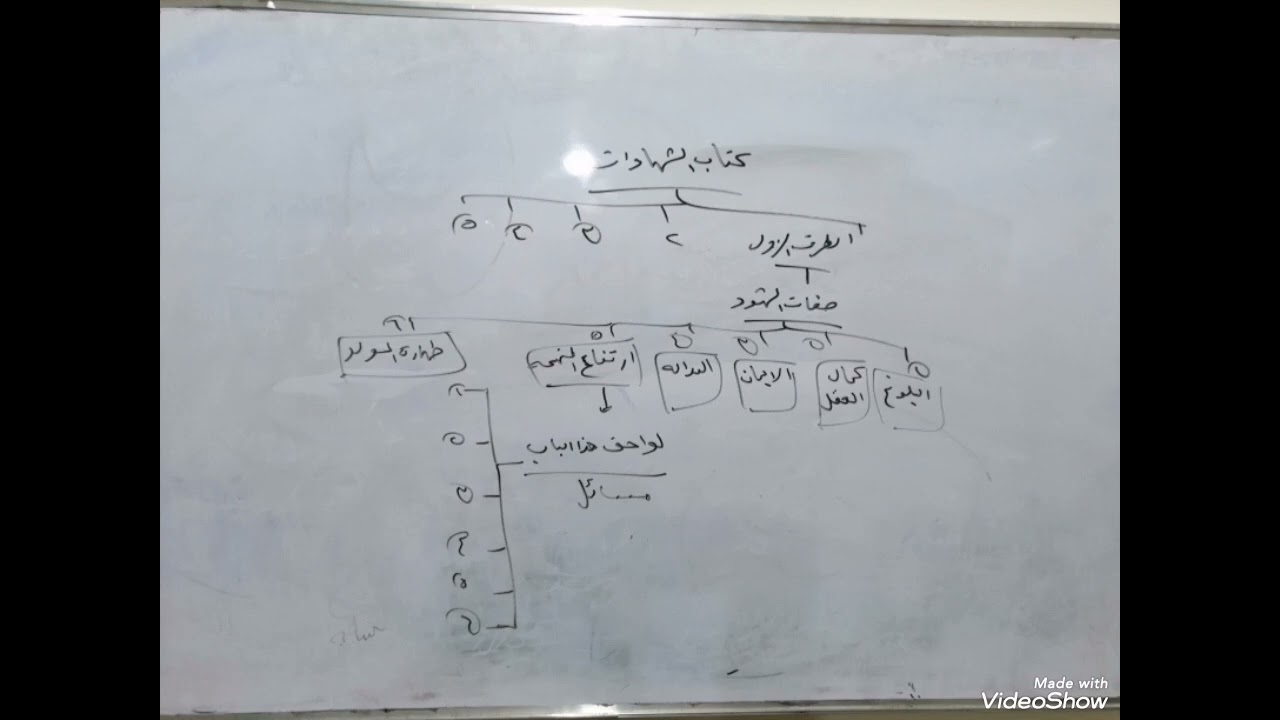 كتاب الشهادات
الطرف الاول
٢
٣
٤
٥
صفات الشهود
١
٢
٣
٤
٥
٦
البلوغ
كمال العقل
الايمان
العدالة
ارتفاع التهمة
طهارة المولد
لواحق هذا الباب
مسائل
١
٢
٣
٤
٥
٦
Made with
VideoShow